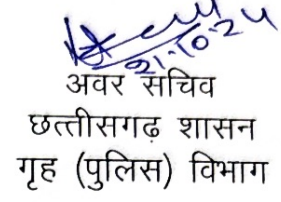 21.10.24
अवर सचिव
छत्तीसगढ़ शासन
गृह (पुलिस) विभाग